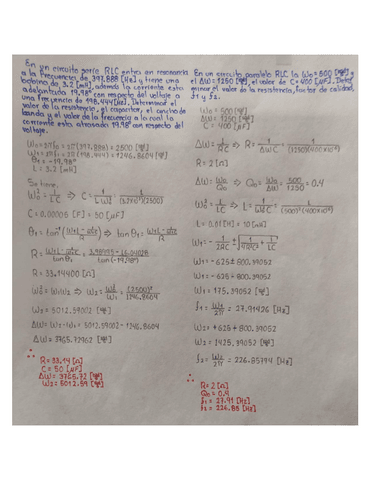 En un circuito serie RLC entra en resonancia
a la frecuencia de 397.888 [Hz] y tiene una
bobina de 3.2 [mH], además la corriente esta
adelantada 19.98° con respecto del voltaje a
una frecuencia de 198.444 [Hz], Determine el
valor de la resistencia, el capacitor, el ancho de
banda y el valor de la frecuencia a la cual la
corriente esta atrasada 19.98° con respecto del
voltaje.
W₀ = 2πf₀ = 2π(397.888) = 2500 [rad/s]
W₁ = 2πf₁ = 2π(198.444) = 1246.8604 [rad/s]
θ₁ = -19.98°
L = 3.2 [mH]
Se tiene,
W₀² = 1/LC ⇒ C = 1/LW₀² = 1/(3.2x10⁻³)(2500)
C = 0.00005 [F] = 50 [μF]
θ₁ = tan⁻¹(W₁L - 1/W₁C / R) ⇒ tan θ₁ = W₁L - 1/W₁C / R
R = W₁L - 1/W₁C / tan θ₁ = 3.98995 - 16.04028 / tan(-19.98°)
R = 33.14400 [Ω]
W₀² = W₁W₂ ⇒ W₂ = W₀²/W₁ = (2500)²/1246.8604
W₂ = 5012.59002 [rad/s]
ΔW = W₂ - W₁ = 5012.59002 - 1246.8604
ΔW = 3765.72962 [rad/s]
∴
R = 33.14 [Ω]
C = 50 [μF]
ΔW = 3765.72 [rad/s]
W₂ = 5012.59 [rad/s]
En un circuito paralelo RLC la W₀ = 500 [rad/s] y
el ΔW = 1250 [rad/s], el valor de C = 400 [μF]. Deter
minar el valor de la resistencia, factor de calidad,
f₁ y f₂.
W₀ = 500 [rad/s]
ΔW = 1250 [rad/s]
C = 400 [μF]
ΔW = 1/RC ⇒ R = 1/ΔWC = 1/(1250)(400x10⁻⁶)
R = 2 [Ω]
ΔW = W₀/Q₀ ⇒ Q₀ = W₀/ΔW = 500/1250 = 0.4
W₀² = 1/LC ⇒ L = 1/W₀²C = 1/(500)²(400x10⁻⁶)
L = 0.01 [H] = 10 [mH]
W₁ = -1/2RC ± √(1/4R²C² + 1/LC)
W₁ = -625 ± 800.39052
W₁ = -625 + 800.39052
W₁ = 175.39052 [rad/s]
f₁ = W₁/2π = 27.91426 [Hz]
W₂ = +625 + 800.39052
W₂ = 1425.39052 [rad/s]
f₂ = W₂/2π = 226.85794 [Hz]
∴
R = 2 [Ω]
Q₀ = 0.4
f₁ = 27.91 [Hz]
f₂ = 226.85 [Hz]